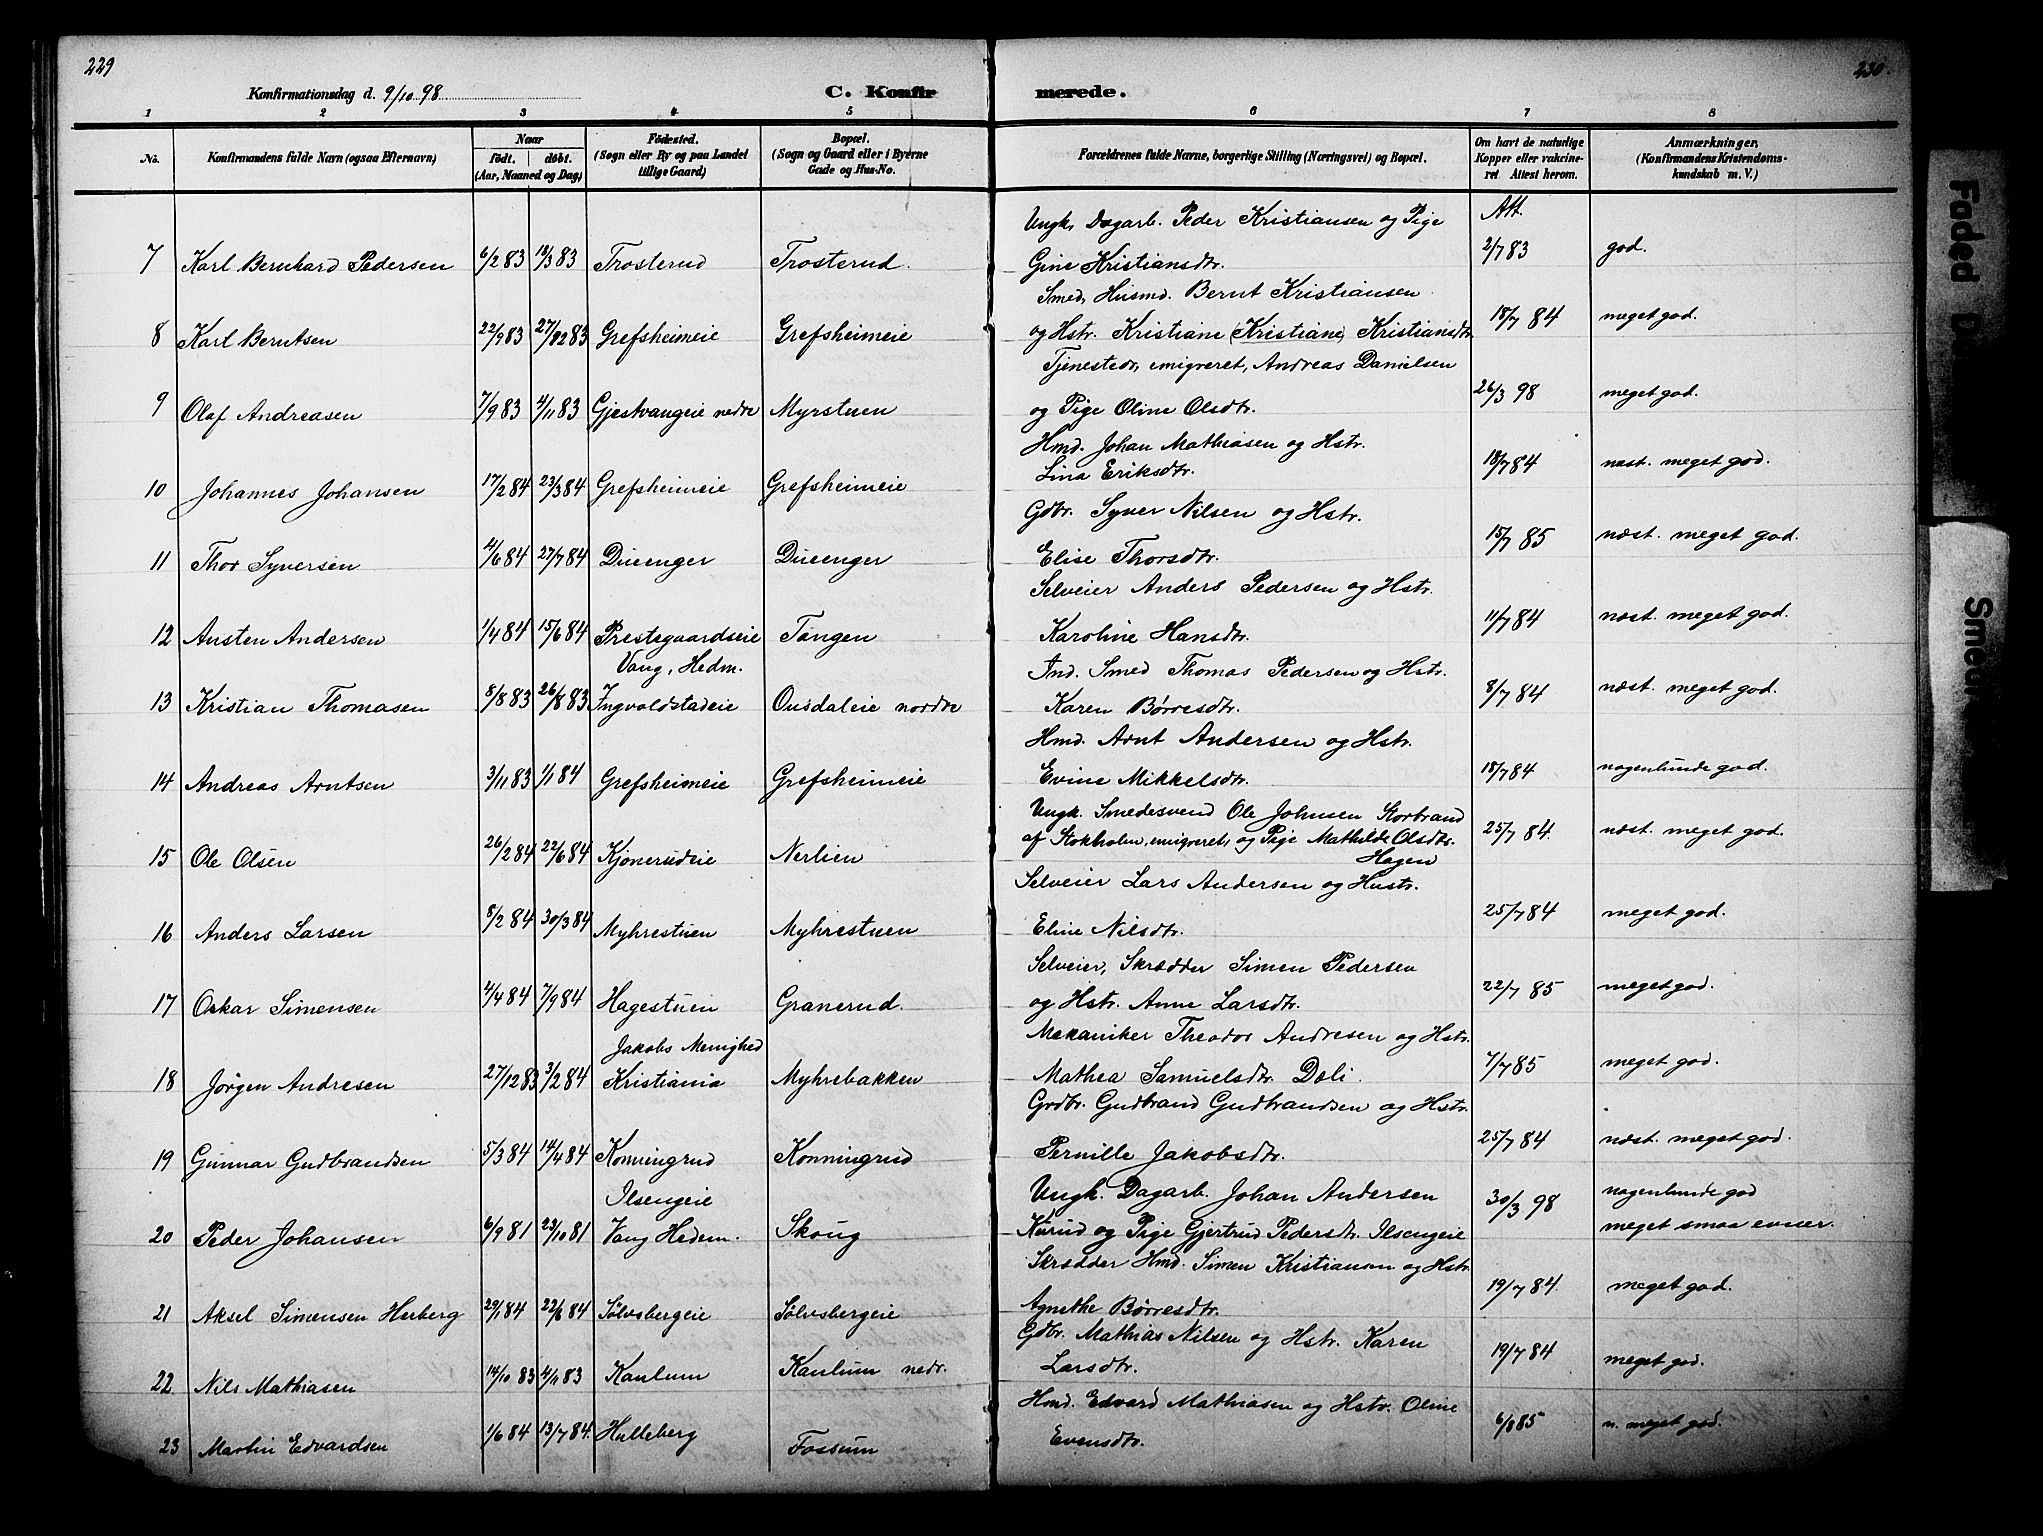 229
230.
Konfirmationsdag d. 9/10 98
C. Konfirmerede.
1 2 3 4 5 6 7 8
No. Konfirmandens fulde Navn (ogsaa Efternavn) Naar født. døbt. (Aar, Maaned og Dag) Fødested. (Sogn eller By og paa Landet tillige Gaard) Bopæl. (Sogn og Gaard eller i Byerne Gade og Hus-No. Forældrenes fulde Navne, borgerlige Stilling (Næringsvei) og Bopæl. Om havt de naturlige Kopper eller vakcineret Attest herom. Anmærkninger, (Konfirmandens Kristendomskundskab m. V.)
Ungk. Dagarb. Peder Kristiansen og Pige Att.
7 Karl Bernhard Pedersen 6/2 83 18/3 83 Trosterud Trosterud. Gine Kristiansdtr. 2/7 83 god.
Smed, Husmd. Bernt Kristiansen
8 Karl Berntsen 22/9 83 27/12 83 Grefsheimeie Grefsheimeie og Hstr. Kristiane (Kristiane) Kristiansdtr. 18/7 84 meget god.
Tjenestedr, emigreret, Andreas Danielsen
9 Olaf Andreasen 7/9 83 4/11 83 Gjestvangeie nedre Myrstuen og Pige Oline Olsdtr. 26/3 98 meget god.
Hmd. Johan Mathiasen og Hstr.
10 Johannes Johansen 17/2 84 23/3 84 Grefsheimeie Grefsheimeie Lina Eriksdtr. 18/7 84 næst. meget god.
Gdbr. Syver Nilsen og Hstr.
11 Thor Syversen 4/6 84 27/7 84 Dueenger Dueenger Elise Thorsdtr. 15/7 85 næst. meget god.
Selveier Anders Pedersen og Hstr.
12 Austen Andersen 1/4 84 15/6 84 Prestegaardseie Tangen Karoline Hansdtr. 11/7 84 næst. meget god.
Vang, Hedm. Ind. Smed Thomas Pedersen og Hstr.
13 Kristian Thomasen 8/8 83 26/8 83 Ingvoldstadeie Ousdaleie nordre Karen Børresdtr. 8/7 84 næst. meget god.
Hmd. Arnt Andersen og Hstr.
14 Andreas Arntsen 3/11 83 1/1 84 Grefsheimeie Grefsheimeie Evine Mikkelsdtr. 18/7 84 nogenlunde god.
Ungk. Smedesvend Ole Johnsen Storbrand
15 Ole Olsen 26/2 84 22/6 84 Kjonerudeie Nerlien af Stokholm, emigreret, og Pige Mathilde Olsdtr. 25/7 84. næst. meget god.
Hagen
Selveier Lars Andersen og Hustr.
16 Anders Larsen 8/2 84 30/3 84 Myhrestuen Myhrestuen Eline Nilsdtr. 25/7 84 meget god.
Selveier, Skrædder Simen Pedersen
17 Oskar Simensen 4/4 84 7/9 84 Hagestuen Granerud. og Hstr. Anne Larsdtr. 22/7 85 meget god.
Jakobs Menighed Mekaniker Theodor Andresen og Hstr.
18 Jörgen Andresen 27/12 83 3/2 84 Kristiania Myhrebakken Mathea Samuelsdtr. Dæli. 7/7 85 meget god.
Grdbr. Gudbrand Gudbrandsen og Hstr.
19 Gunnar Gudbrandsen 5/3 84 14/4 84 Konningrud Konningrud Pernille Jakobsdtr. 25/7 84 næst. meget god.
Ilsengeie Ungk. Dagarb. Johan Andersen 30/3 98 nogenlunde god
20 Peder Johansen 6/9 81 23/10 81 Vang Hedem. Skoug Kurud og Pige Gjertrud Pedersdtr. Ilsengeie meget smaa evner.
Skrædder Hmd. Simen Kristianson og Hstr.
21 Aksel Simensen Herberg 29/1 84 22/6 84 Sølvsbergeie Sølvsbergeie Agnethe Børresdtr. 19/7 84. meget god.
Gdbr. Mathias Nilsen og Hstr. Karen
22 Nils Mathiasen 14/10 83 4/11 83 Kaulum Kaulum nedr. Larsdtr. 19/7 84 meget god.
Hmd. Edvard Mathiasen og Hstr. Oline
23 Martin Edvardsen 1/6 84 13/7 84. Hulleberg Fossum Evensdtr. 6/8 85 n. meget god.
Faded